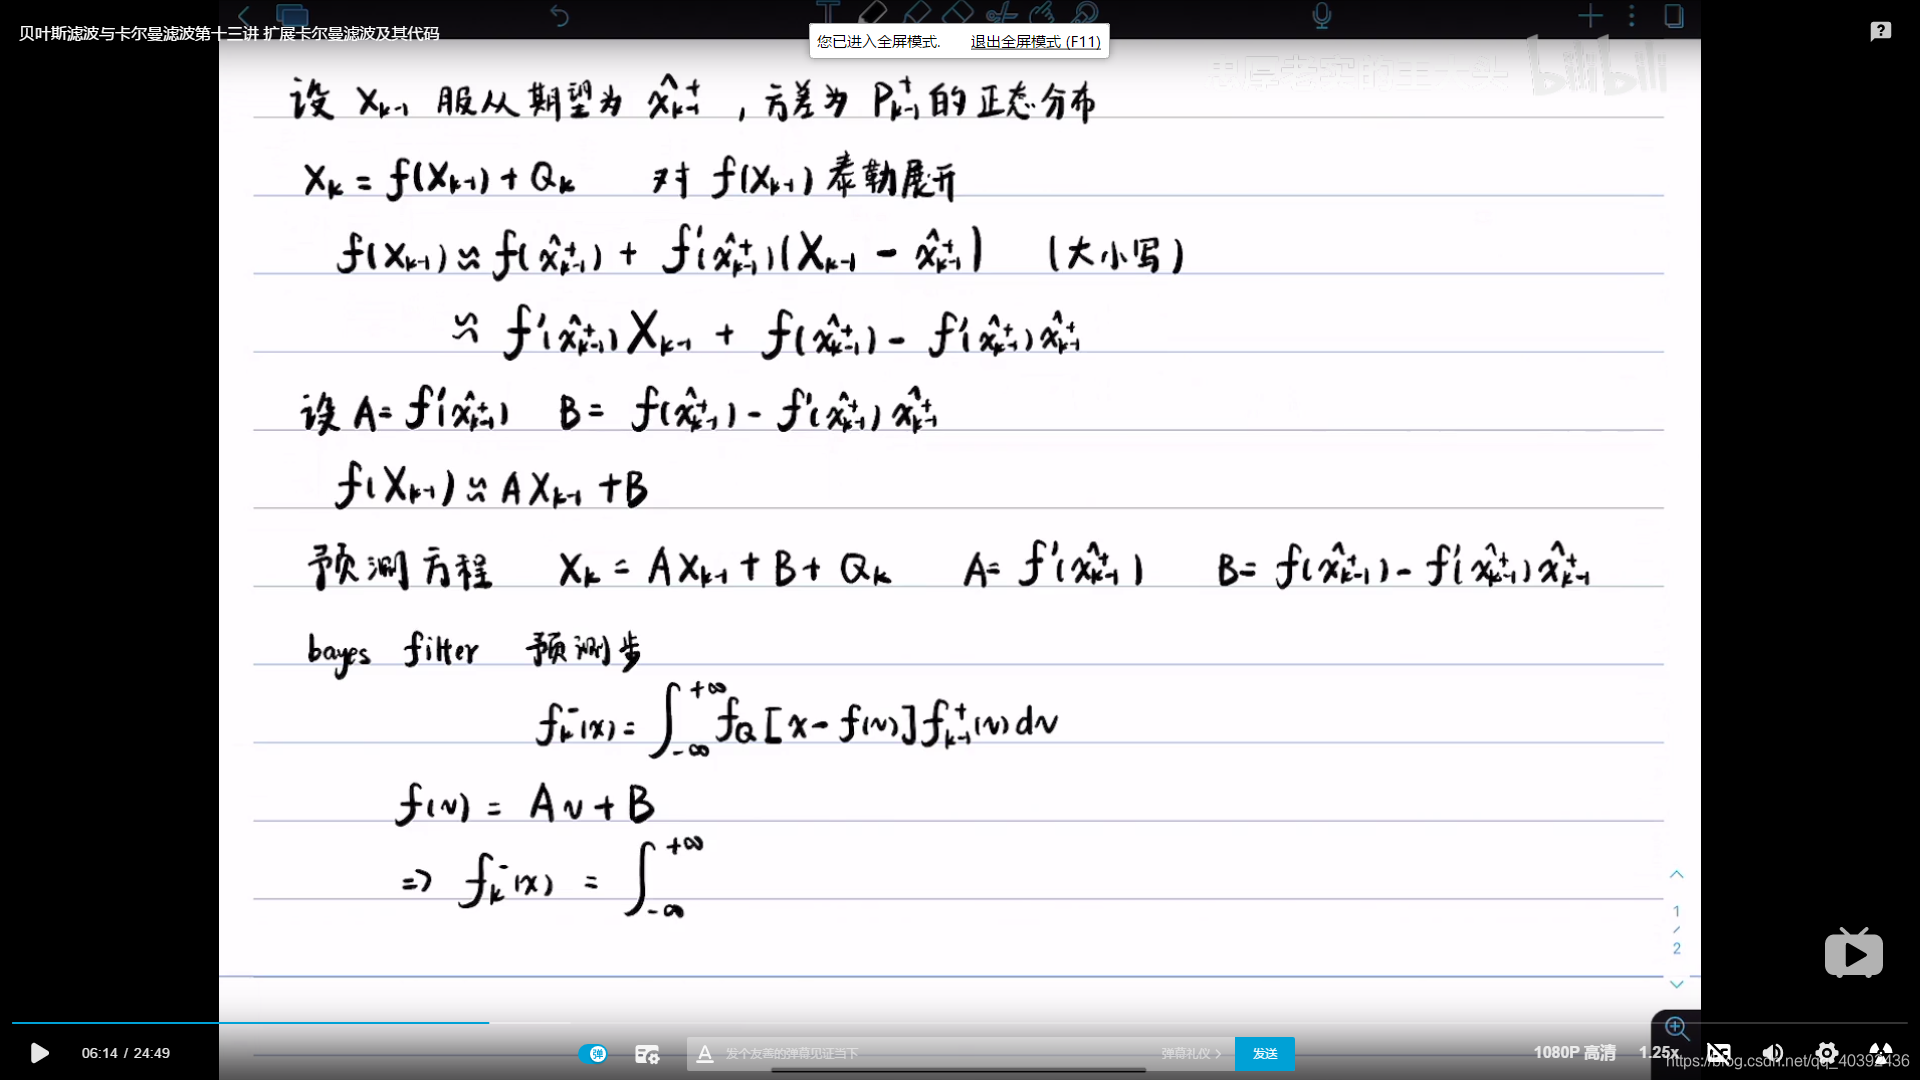 贝叶斯滤波与卡尔曼滤波第十三讲 扩展卡尔曼滤波及其代码
您已进入全屏模式. 退出全屏模式 (F11)
bilibili
设 X_{k-1} 服从期望为 x̂_{k-1}^+ , 方差为 P_{k-1}^+ 的正态分布
X_k = f(X_{k-1}) + Q_k 对 f(X_{k-1}) 泰勒展开
f(X_{k-1}) ≈ f(x̂_{k-1}^+) + f'(x̂_{k-1}^+)(X_{k-1} - x̂_{k-1}^+) (大小写)
≈ f'(x̂_{k-1}^+) X_{k-1} + f(x̂_{k-1}^+) - f'(x̂_{k-1}^+) x̂_{k-1}^+
设 A = f'(x̂_{k-1}^+) B = f(x̂_{k-1}^+) - f'(x̂_{k-1}^+) x̂_{k-1}^+
f(X_{k-1}) ≈ A X_{k-1} + B
预测方程 X_k = A X_{k-1} + B + Q_k A = f'(x̂_{k-1}^+) B = f(x̂_{k-1}^+) - f'(x̂_{k-1}^+) x̂_{k-1}^+
bayes filter 预测步
f_k^-(x) = ∫_{-∞}^{+∞} f_Q [x - f(v)] f_{k-1}^+(v) dv
f(v) = A v + B
⇒ f_k^-(x) = ∫_{-∞}^{+∞}
1
/
2
06:14 / 24:49
弹
发个友善的弹幕见证当下
弹幕礼仪 >
发送
1080P 高清
1.25x
https://blog.csdn.net/qq_40392436